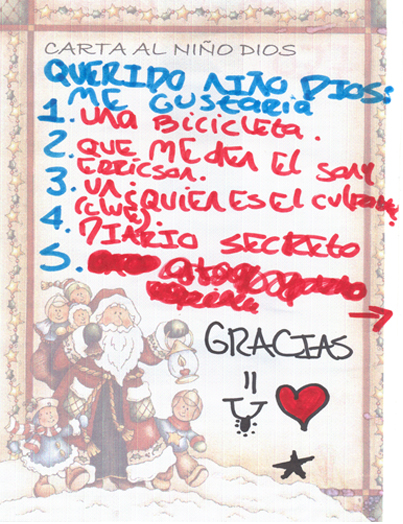 CARTA AL NIÑO DIOS
QUERIDO NIÑO DIOS:
ME GUSTARIA
1. UNA BICICLETA.
2. QUE ME DEN EL SONY
ERICSON.
3. UN ¿QUIEN ES EL CULPABLE?
(CLUE).
4. DIARIO SECRETO
5.
GRACIAS